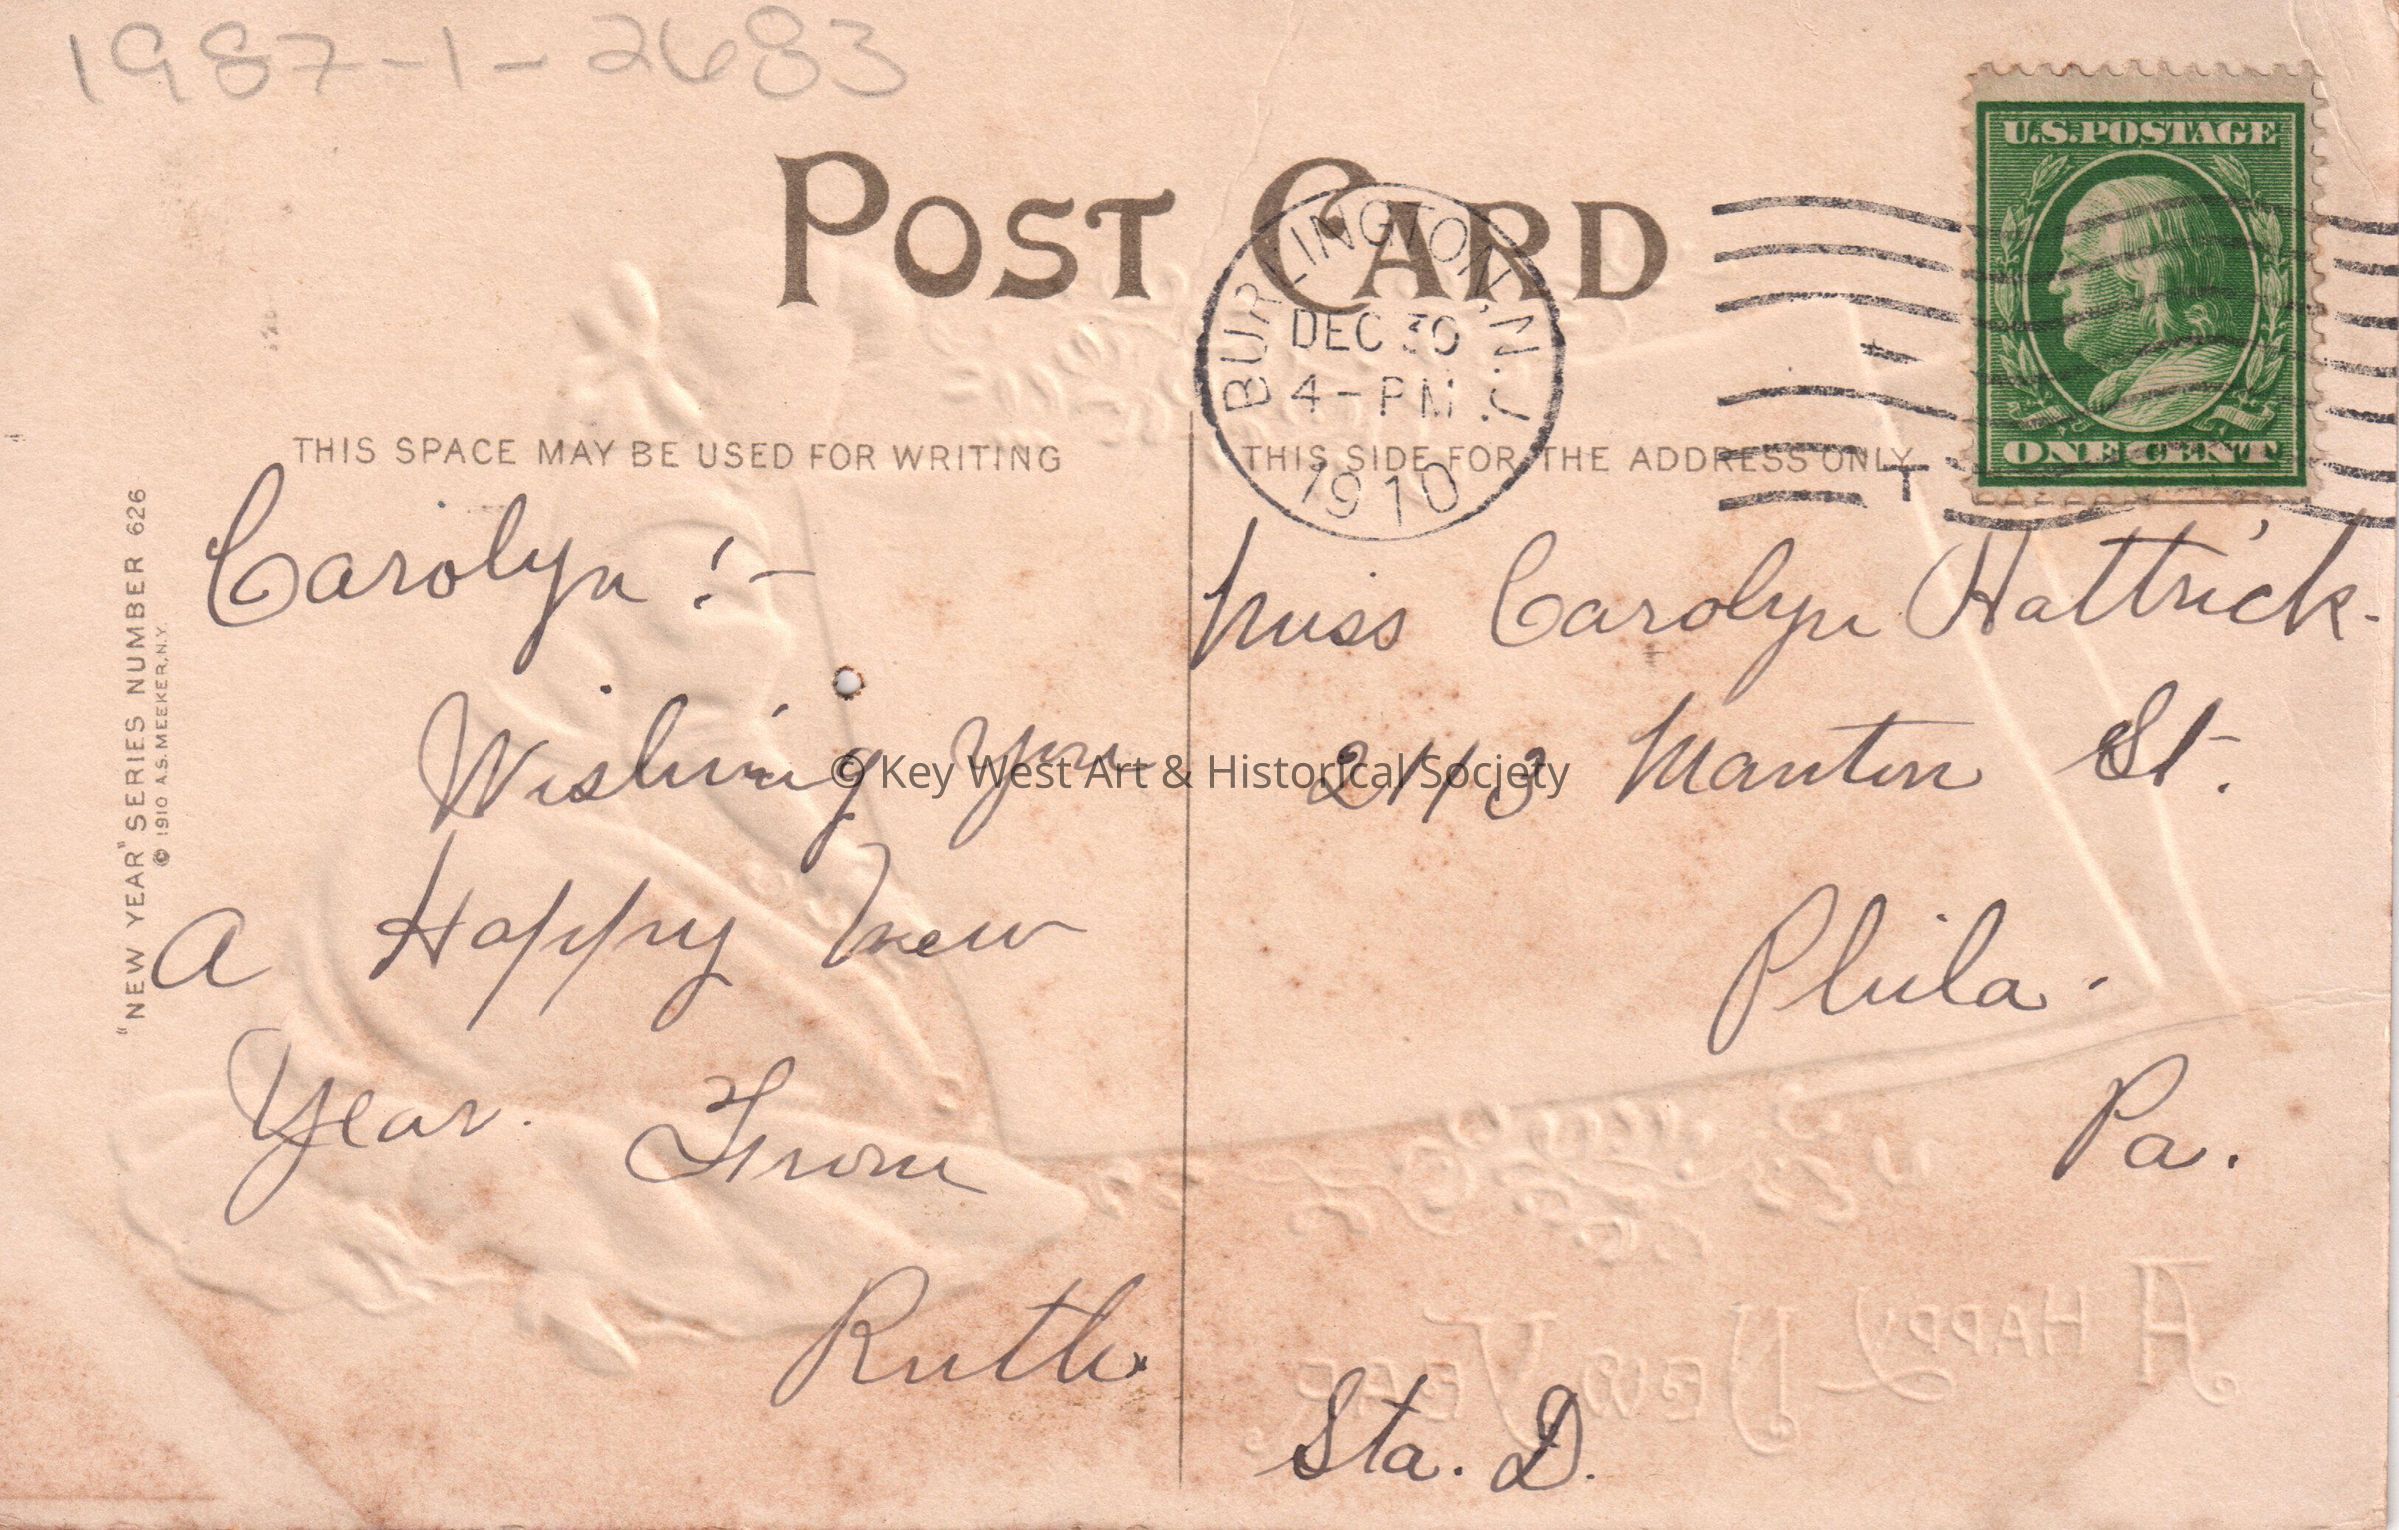 1987-1-2683
POST CARD
U.S. POSTAGE
ONE CENT
BURLINGTON, N.J.
DEC 30
4-PM
1910
THIS SPACE MAY BE USED FOR WRITING
THIS SIDE FOR THE ADDRESS ONLY
T
"NEW YEAR" SERIES NUMBER 626
© 1910 A.S. MEEKER, N.Y.
Carolyn!-
Wishing you
A Happy New
Year. From
Ruth.
Miss Carolyn Hattrick.
2113 Manton St.
Phila.
Pa.
Sta. D.
© Key West Art & Historical Society
A HAPPY
NEW YEAR